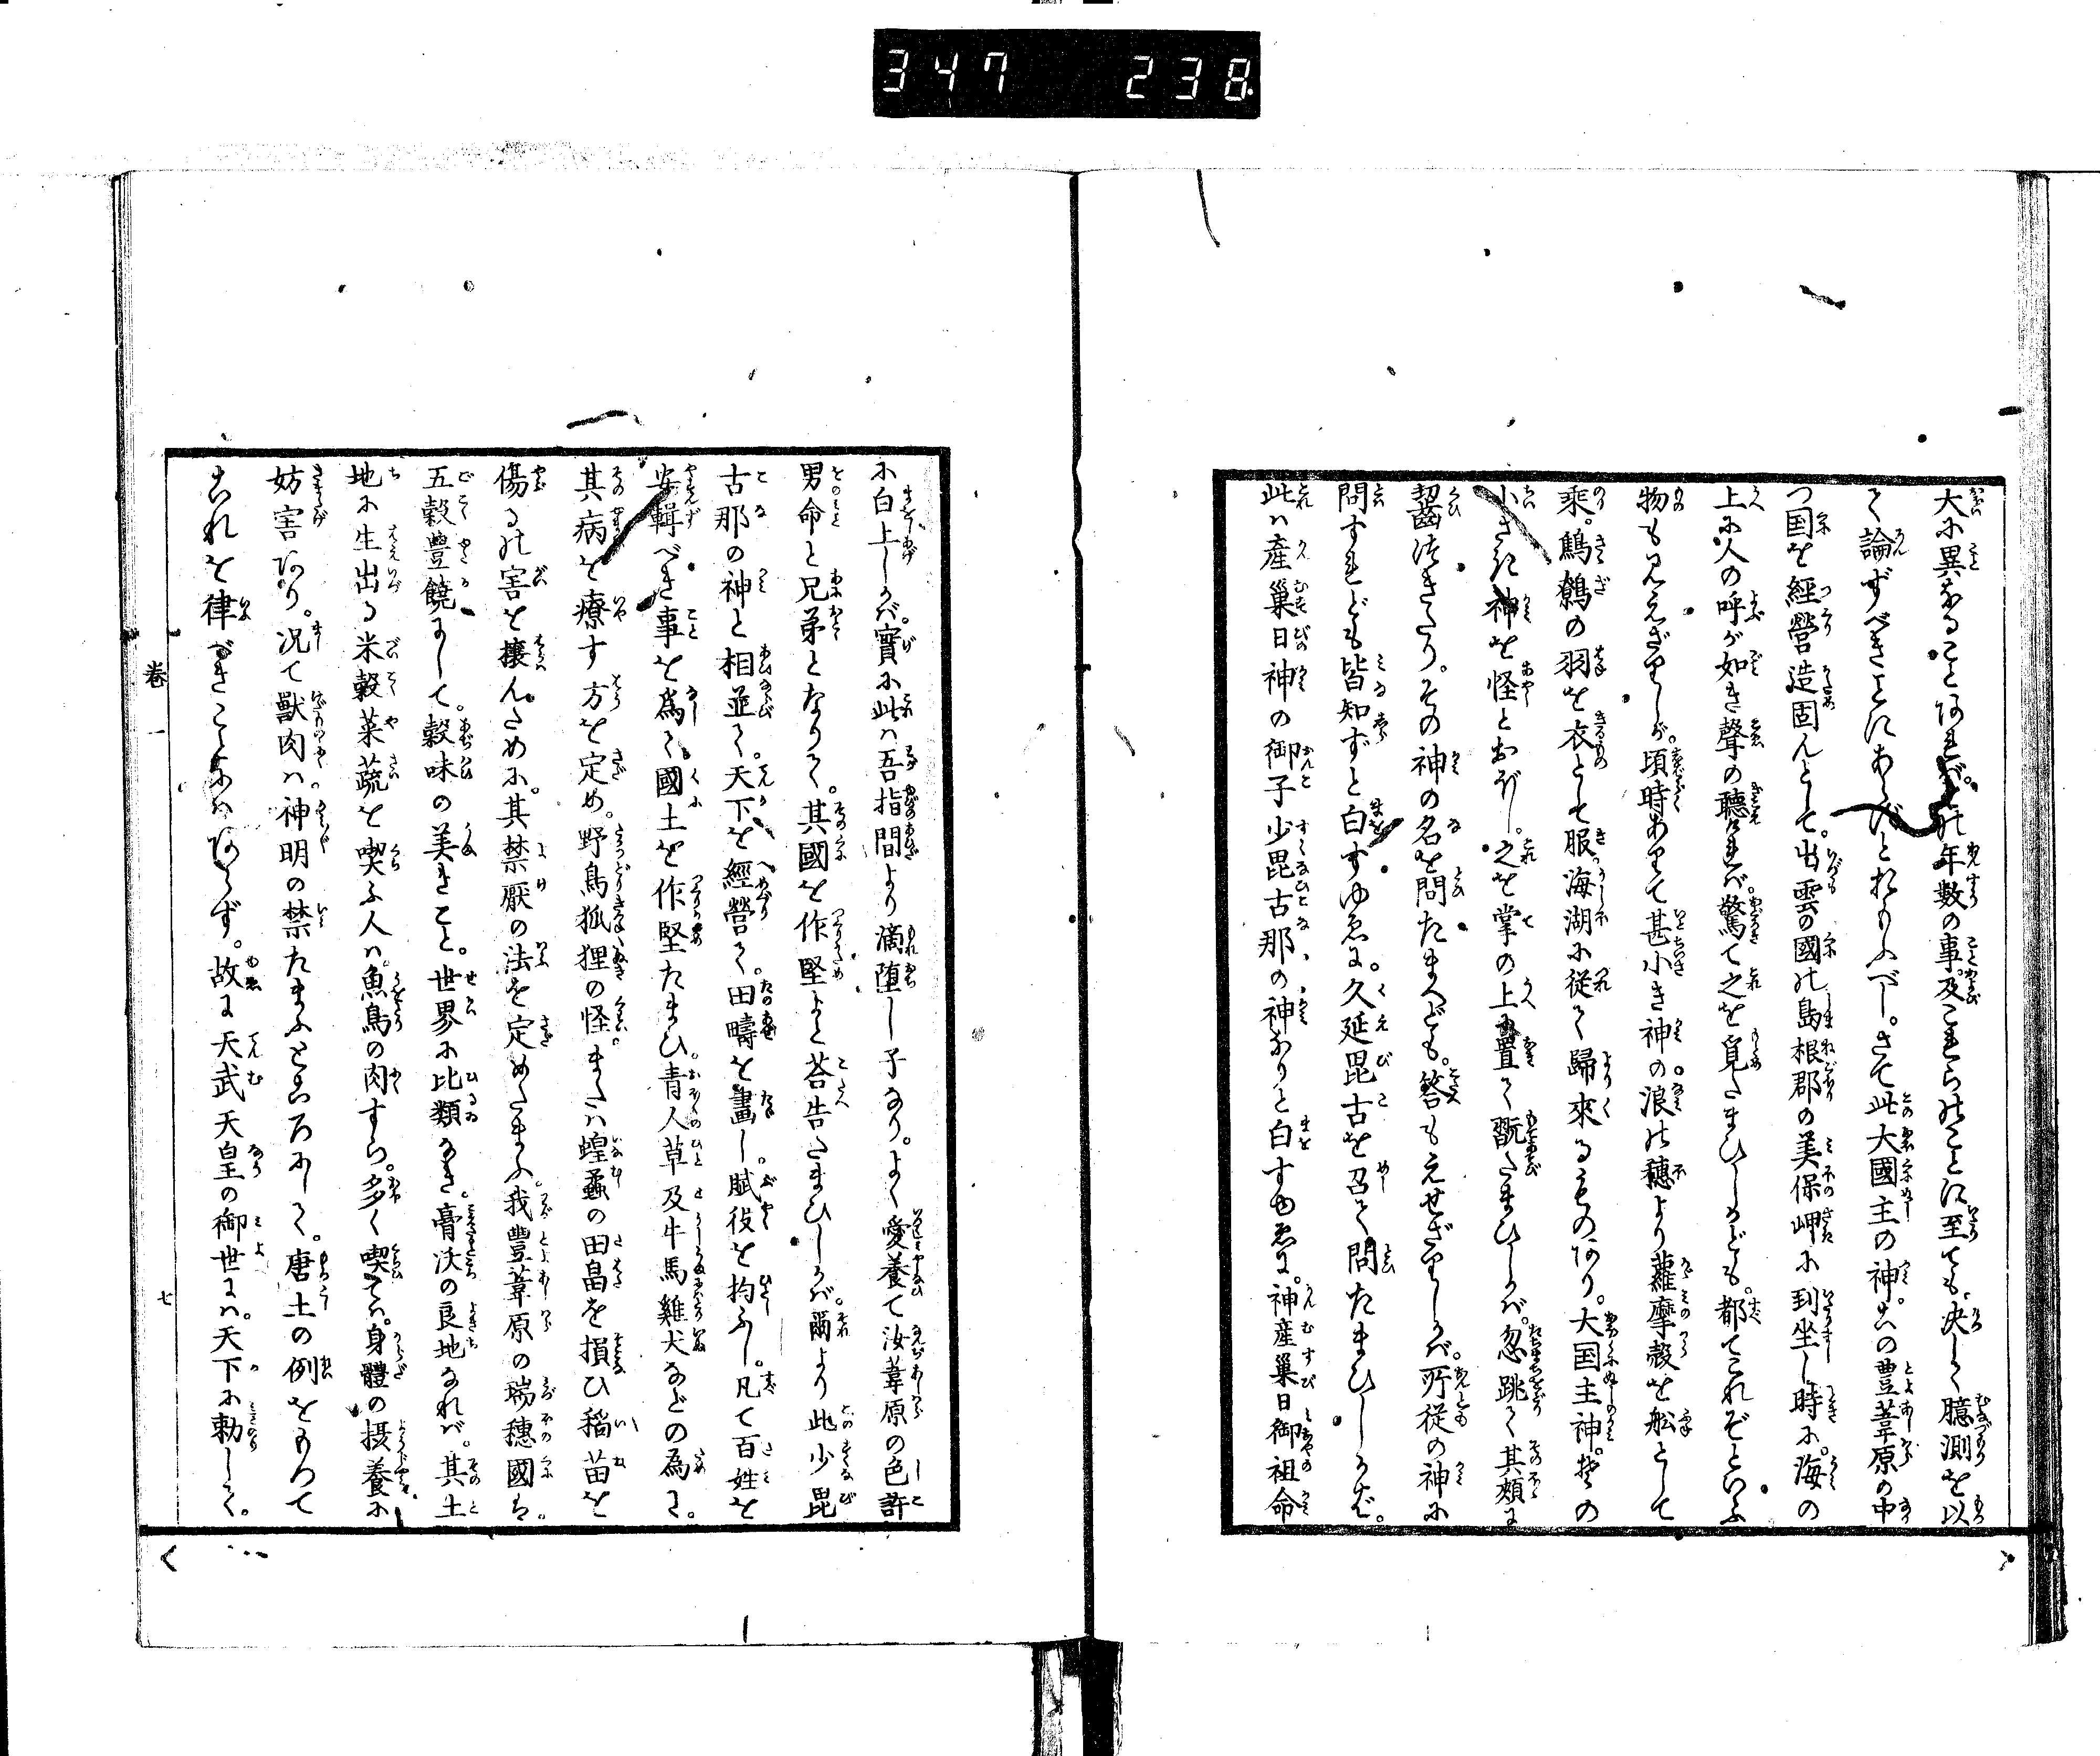 347 238
大に異なることあれば。其年數の事。及これらのことに至ても。決して臆測を以
て論ずべきことにあらずとおもふべし。さて此大國主の神。この豊葦原の中
つ国を經營造固んとして。出雲の國の島根郡の美保岬に到坐し時に。海の
上に人の呼が如き聲の聽ければ。驚て之を覓たまひしかども。都てこれぞといふ
物も見えざりしが。頃時ありて甚小き神の。浪の穗より蘿摩殻を舩として
乘。鷦鷯の羽を衣として服海湖に從て歸來るものあり。大国主神。其の
小さき神を怪とおぼし。之を掌の上に置て翫たまひしかば。忽跳て其頰に
齧つきたり。その神の名を問たまへども。答もえせざりしかば。所從の神に
問すれども皆知ずと白すゆゑに。久延毘古を召て問たまひしかば。
此ハ産巢日神の御子少毘古那の神なりと白すゆゑに。神産巢日御祖命
に白上しかば。實に此ハ吾指間より滴堕し子なり。よく愛養て汝葦原の色許
男命と兄弟となりて。其國を作堅よと荅告たまひしかば。爾より此少毘
古那の神と相並て。天下を經營て。田疇を畫し。賦役を拘ふし。凡て百姓を
安輯べき事を爲て。國土を作堅たまひ。青人草及牛馬雞犬などの為に。
其病を療す方を定め。野鳥狐狸の怪。または蝗蟊の田畠を損ひ稻苗を
傷るの害を攘んために。其禁厭の法を定めたまふ。我豐葦原の瑞穗國は。
五穀豐饒にして。穀味の美きこと。世界に比類なき。膏沃の良地なれば。其土
地に生出る米穀菜蔬を喫ふ人ハ。魚鳥の肉すら。多く喫てハ。身體の摂養に
妨害あり。况て獸肉ハ。神明の禁たまふところにして。唐土の例をもつて
これを律べきことにハあらず。故に天武天皇の御世にハ。天下に勅して。
巻一
七